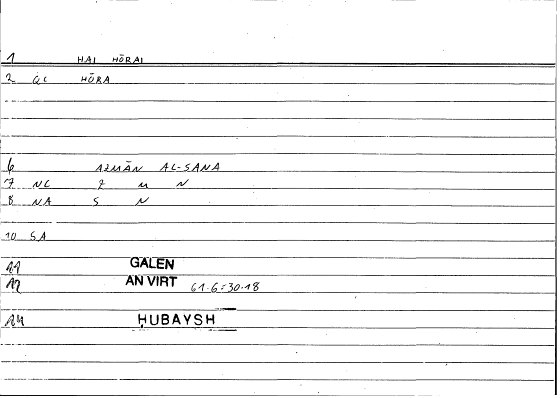 1 HAI HŌRAI
2 QL HŌRA
6 AZMĀN AL-SANA
7 NC Z M N
8 NA S N
10 SA
11 GALEN
12 AN VIRT 61.6=30.18
14 ḤUBAYSH